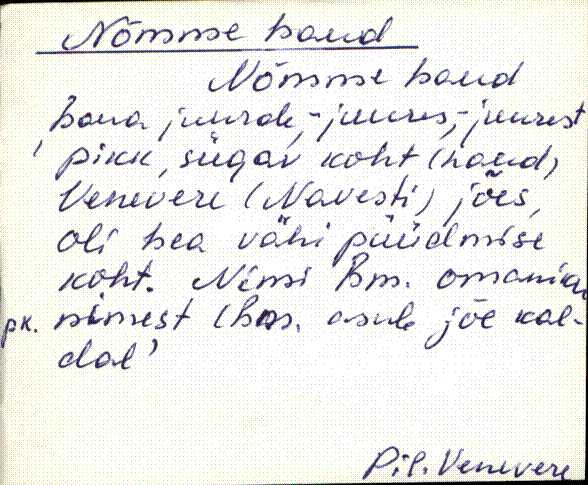 Nõmme haud
Nõmme haud
haua juurde, -juures, -juurest
'pikk, sügav koht (haud)
Venevere (Navesti) jões,
oli hea vähi püüdmise
koht. Nimi hm. omaniku
pk. nimest (hm. asub jõe kal-
dal'
Pil. Venevere